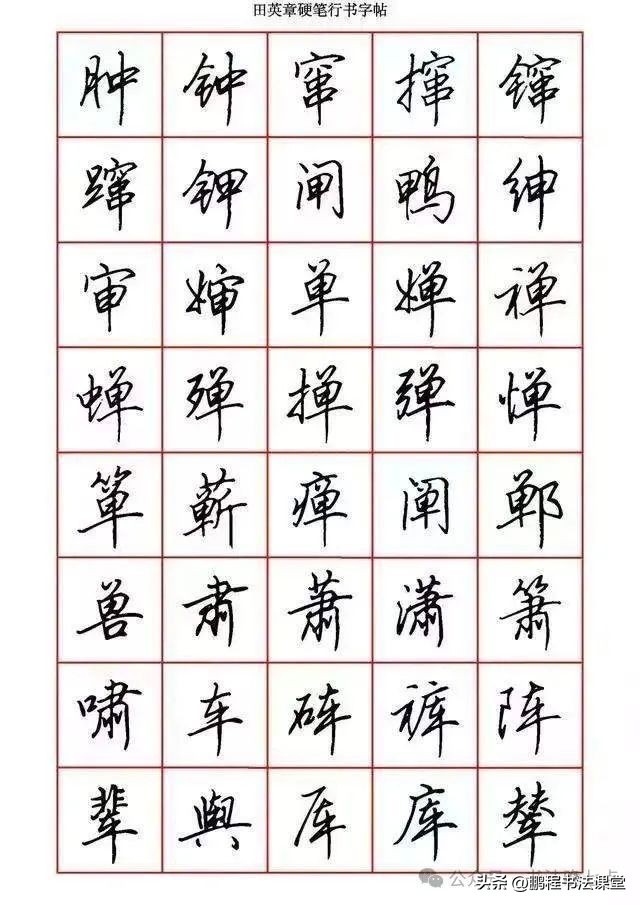 田英章硬笔行书字帖
肿 钟 窜 撺 镩
蹿 钾 闸 鸭 绅
审 婶 单 婵 禅
蝉 殚 掸 弹 惮
箪 蕲 瘅 阐 郸
兽 肃 萧 潇 箫
啸 车 砗 裤 阵
辇 舆 厍 库
头条 @鹏程书法课堂